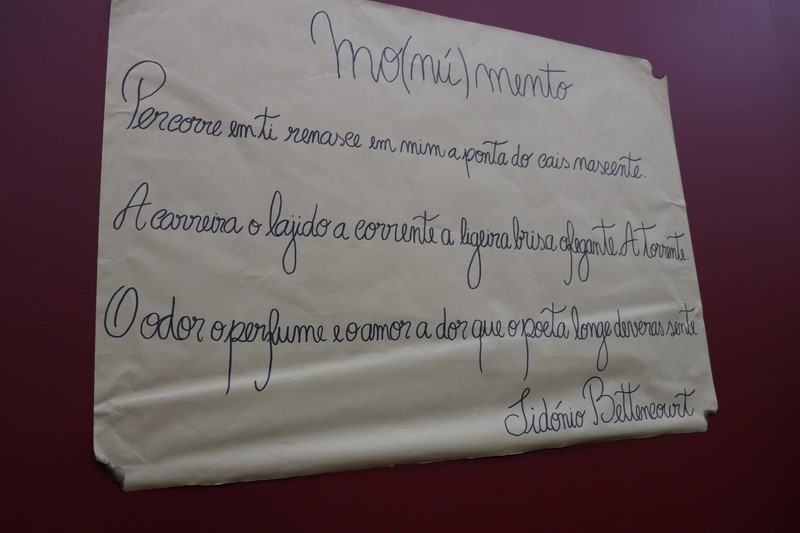 Mo(nú)mento
Percorre em ti renasce em mim a ponta do cais nascente.
A carreira o lajido a corrente a ligeira brisa ofegante. A torrente.
O odor o perfume e o amor a dor que o poeta longe deveras sente
Sidónio Bettencourt